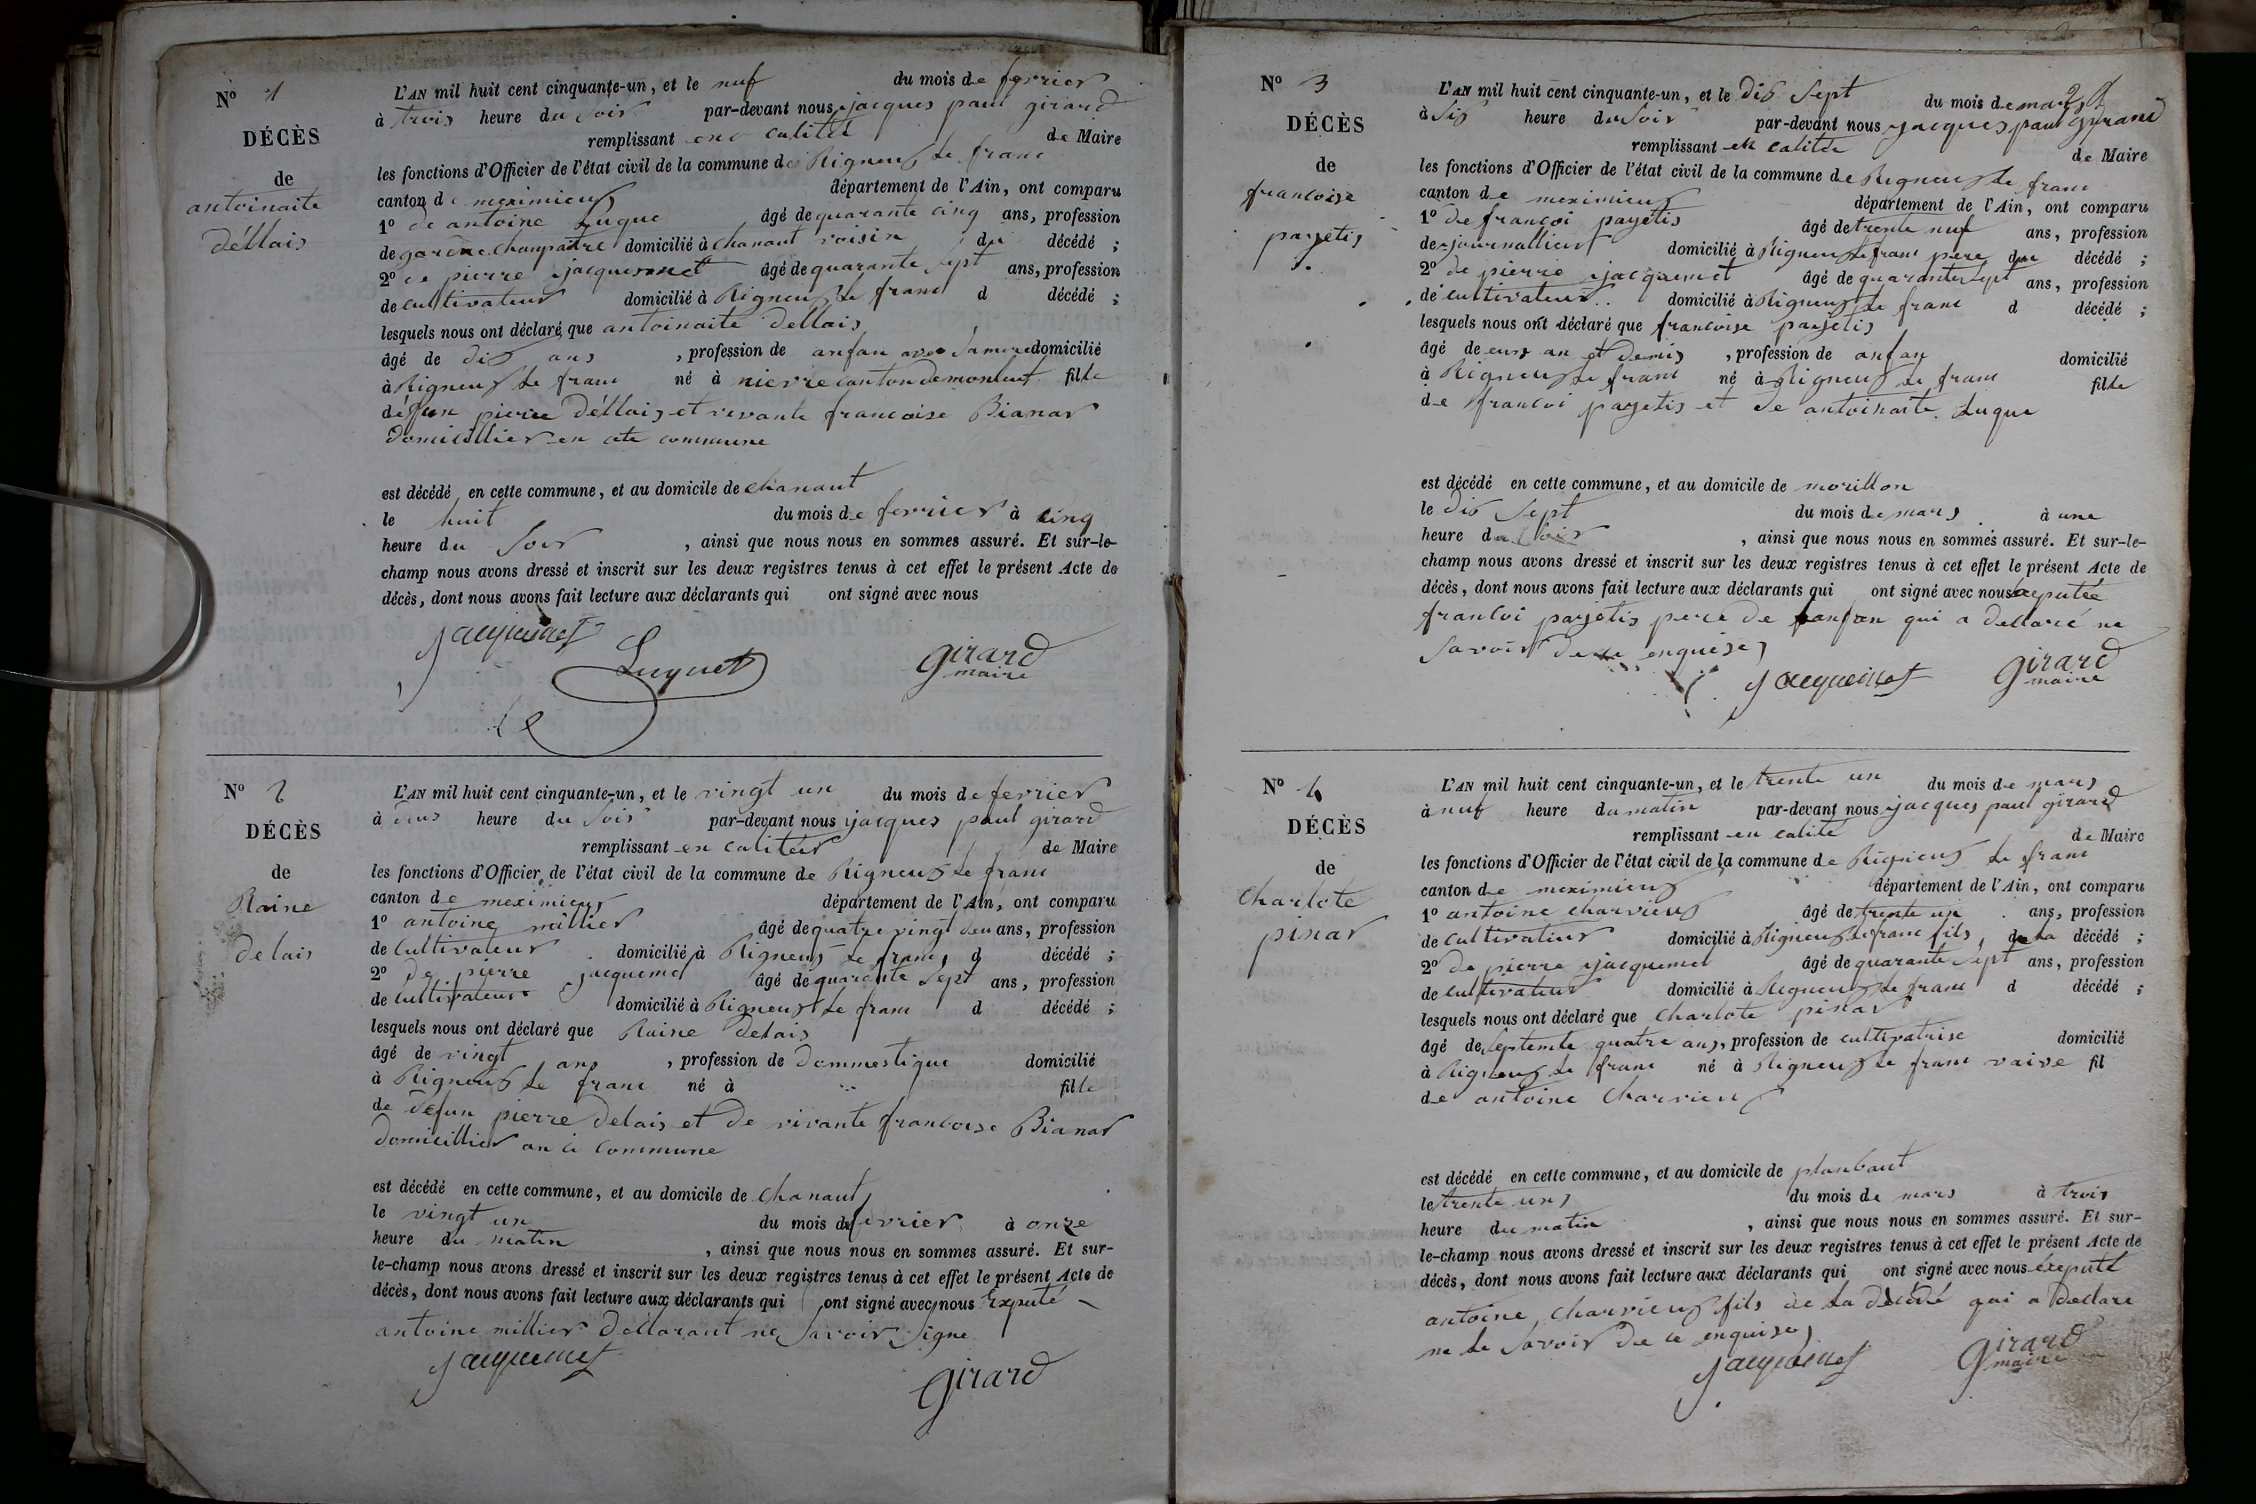 N° 1
DÉCÈS
de
antoinaite
déllais
L'AN mil huit cent cinquante-un, et le nuf du mois de ferrier
à trois heure du soir par-devant nous jacques paul girard
remplissant en calitét de Maire
les fonctions d'Officier de l'état civil de la commune de Rigneux le franc
canton de meximieux département de l'Ain, ont comparu
1° de antoine Luque âgé de quarante cinq ans, profession
de garde champatre domicilié à chanaut voisin du décédé ;
2° de pierre jacquemet âgé de quarante sept ans, profession
de cultivateur domicilié à Rigneux le franc d décédé ;
lesquels nous ont déclaré que antoinaite dellais
âgé de dix ans , profession de anfan avec sa mere domicilié
à Rigneux le franc né à nievre canton de monluet fille
de défun pierre déllais et vevante francoise Bianar
domicillier en cete commune
est décédé en cette commune, et au domicile de chanaut
le huit du mois de ferrier à cinq
heure du soir , ainsi que nous nous en sommes assuré. Et sur-le-
champ nous avons dressé et inscrit sur les deux registres tenus à cet effet le présent Acte de
décès, dont nous avons fait lecture aux déclarants qui ont signé avec nous
jacquemet Luquet girard
maire
N° 2
DÉCÈS
de
Raine
delais
L'AN mil huit cent cinquante-un, et le vingt un du mois de ferrier
à deus heure du soir par-devant nous jacques paul girard
remplissant en calitér de Maire
les fonctions d'Officier de l'état civil de la commune de Rigneux le franc
canton de meximieux département de l'Ain, ont comparu
1° antoine millier âgé de quatre vingt deu ans, profession
de cultivateur domicilié à Rigneux le franc d décédé ;
2° de pierre jacquemet âgé de quarante sept ans, profession
de cultivateur domicilié à Rigneux le franc d décédé ;
lesquels nous ont déclaré que Raine delais
âgé de vingt ans , profession de dommestique domicilié
à Rigneux le franc né à fille
de défun pierre delais et de vivante francoise Bianar
domicillier an ce commune
est décédé en cette commune, et au domicile de chanaut
le vingt un du mois de fevrier à onze
heure du matin , ainsi que nous nous en sommes assuré. Et sur-
le-champ nous avons dressé et inscrit sur les deux registres tenus à cet effet le présent Acte de
décès, dont nous avons fait lecture aux déclarants qui ont signé avec nous Exputé
antoine millier déllarant ne savoir signe
jacquemet girard
N° 3
DÉCÈS
de
francoise
payetis
L'AN mil huit cent cinquante-un, et le dix sept du mois de mars
à six heure du soir par-devant nous jacques paul gyrard
remplissant en calitée de Maire
les fonctions d'Officier de l'état civil de la commune de Rigneux le franc
canton de meximieux département de l'Ain, ont comparu
1° de francoi payetis âgé de trente nuf ans, profession
de journallieur domicilié à Rigneux le franc pere du décédé ;
2° de pierre jacquemet âgé de quarante sept ans, profession
de cultivateur domicilié à Rigneux le franc d décédé ;
lesquels nous ont déclaré que francoise payetis
âgé de eun an et demis , profession de anfan domicilié
à Rigneux le franc né à Rigneux le franc fille
de francoi payetis et de antoinaite Luque
est décédé en cette commune, et au domicile de morillon
le dix sept du mois de mars à une
heure du soir , ainsi que nous nous en sommes assuré. Et sur-le-
champ nous avons dressé et inscrit sur les deux registres tenus à cet effet le présent Acte de
décès, dont nous avons fait lecture aux déclarants qui ont signé avec nous exputée
francoi payetis pere de lanfan qui a dellaré ne
savoir de ce enquises
jacquemet girard
maire
N° 4
DÉCÈS
de
charlote
pinar
L'AN mil huit cent cinquante-un, et le trente un du mois de mars
à nuf heure du matin par-devant nous jacques paul girard
remplissant en calité de Maire
les fonctions d'Officier de l'état civil de la commune de Rigneux le franc
canton de meximieux département de l'Ain, ont comparu
1° antoine charvieux âgé de trente un ans, profession
de cultivateur domicilié à Rigneux le franc fils de la décédé ;
2° de pierre jacquemet âgé de quarante sept ans, profession
de cultivateur domicilié à Rigneux le franc d décédé ;
lesquels nous ont déclaré que charlote pinar
âgé de septente quatre ans, profession de cultivatrise domicilié
à Rigneux le franc né à Rigneux le franc vaive fil
de antoine charvieux
est décédé en cette commune, et au domicile de planbaut
le trente uns du mois de mars à trois
heure du matin , ainsi que nous nous en sommes assuré. Et sur-
le-champ nous avons dressé et inscrit sur les deux registres tenus à cet effet le présent Acte de
décès, dont nous avons fait lecture aux déclarants qui ont signé avec nous exputé
antoine charvieux fils de la décédé qui a déclare
ne le savoir de ce enquises
jacquemet girard
maire